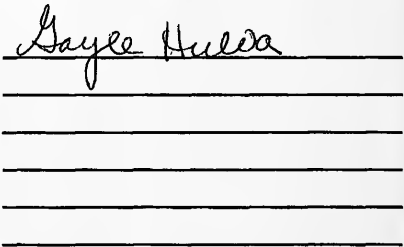 Gayle Hulva